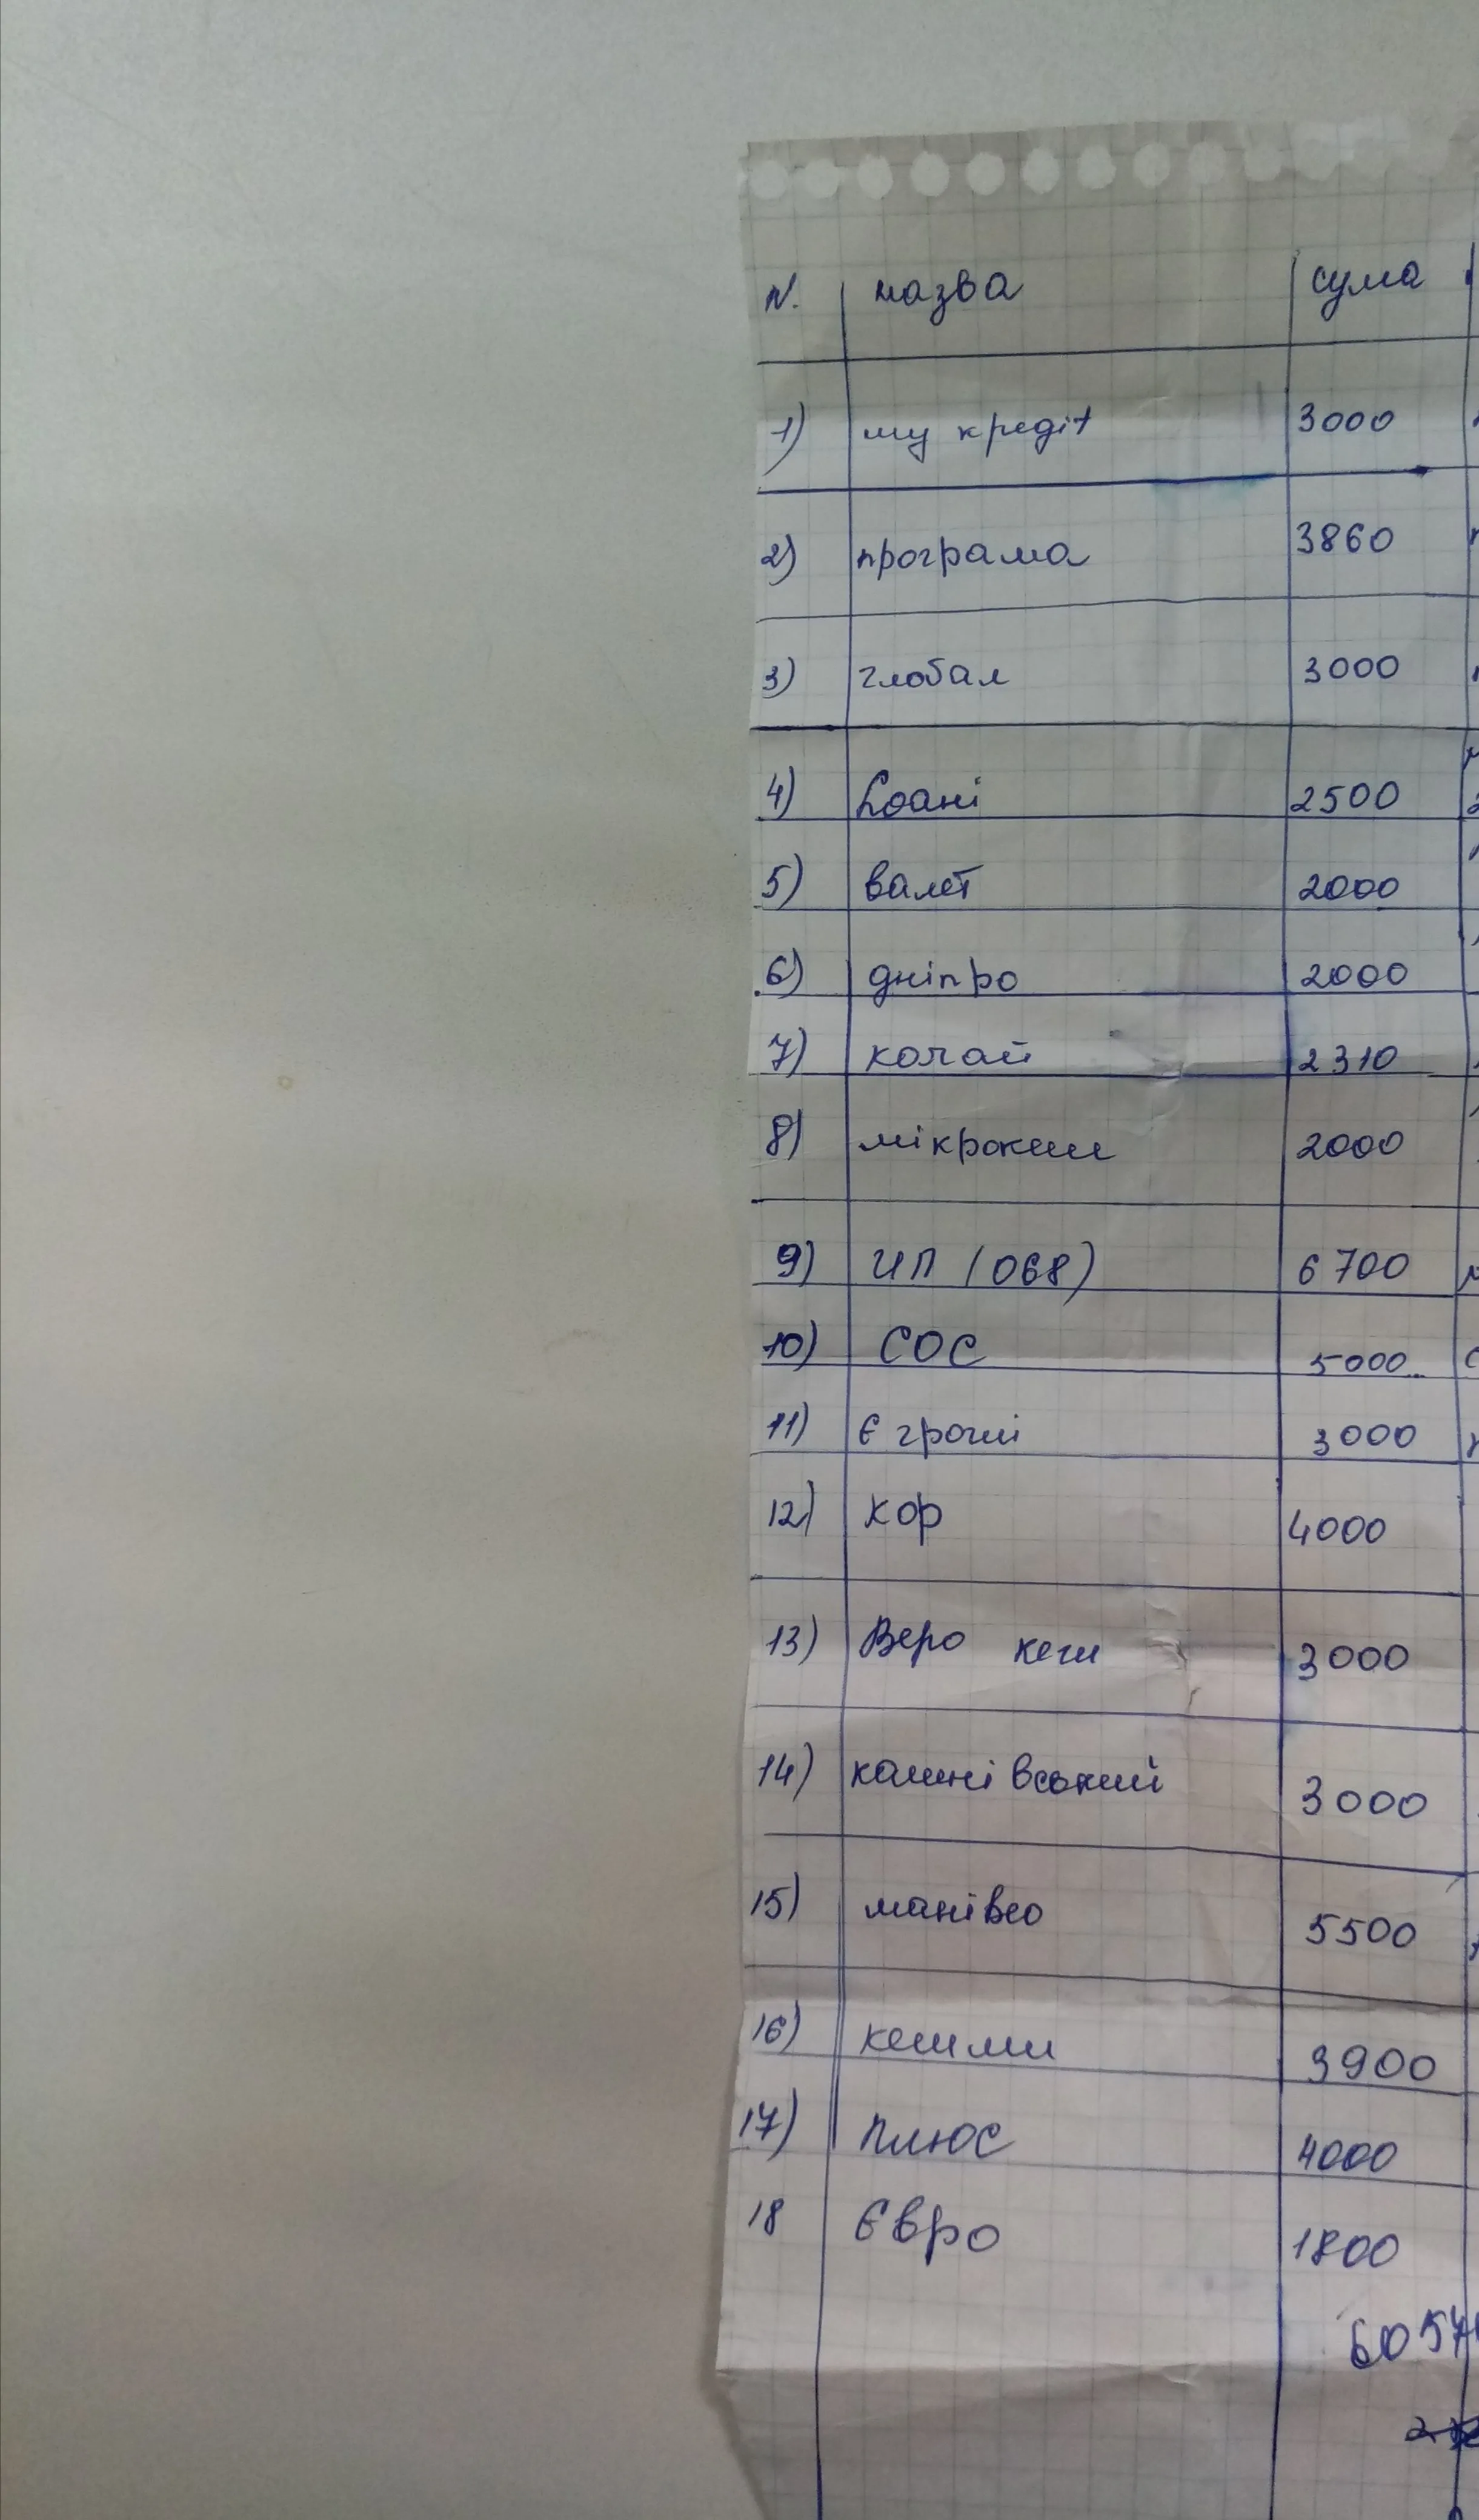 N. назва сума
1) му кредіт 3000
2) програма 3860
3) глобал 3000
4) Lоані 2500
5) валет 2000
6) дніпро 2000
7) качай 2310
8) мікрокеш 2000
9) ИП (068) 6700
10) СОС 5000
11) Є гроші 3000
12) кор 4000
13) Веро кеш 3000
14) кашнівський 3000
15) манівео 5500
16) кешми 3900
17) плюс 4000
18 Євро 1800
6057